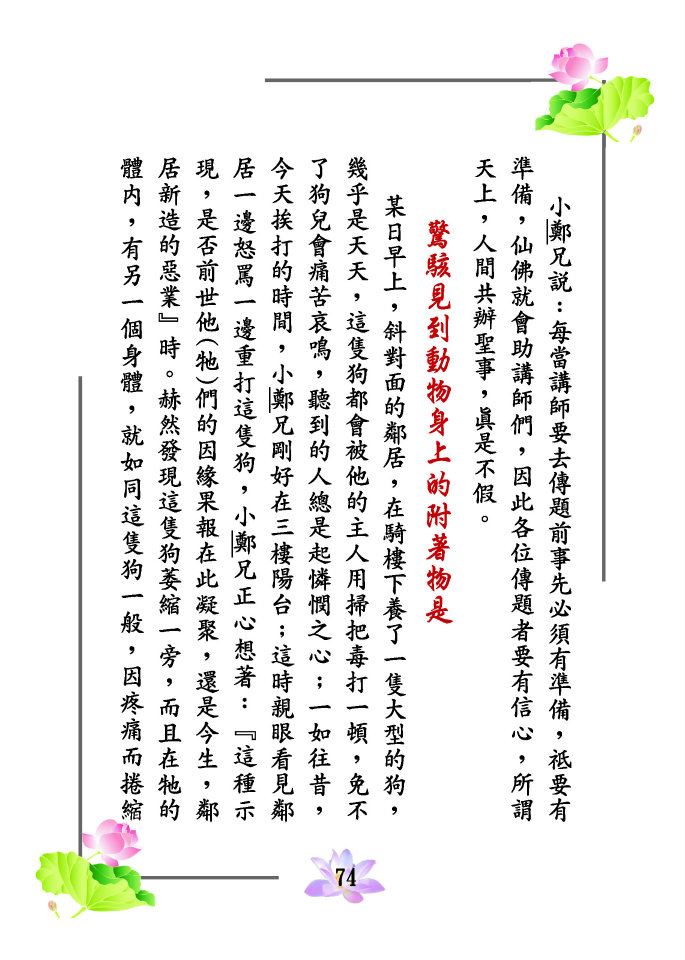 小鄭兄說：每當講師要去傳題前事先必須有準備，祗要有
準備，仙佛就會助講師們，因此各位傳題者要有信心，所謂
天上，人間共辦聖事，眞是不假。
驚駭見到動物身上的附著物是
某日早上，斜對面的鄰居，在騎樓下養了一隻大型的狗，
幾乎是天天，這隻狗都會被他的主人用掃把毒打一頓，免不
了狗兒會痛苦哀鳴，聽到的人總是起憐憫之心；一如往昔，
今天挨打的時間，小鄭兄剛好在三樓陽台；這時親眼看見鄰
居一邊怒罵一邊重打這隻狗，小鄭兄正心想著：『這種示
現，是否前世他(牠)們的因緣果報在此凝聚，還是今生，鄰
居新造的惡業』時。赫然發現這隻狗萎縮一旁，而且在牠的
體內，有另一個身體，就如同這隻狗一般，因疼痛而捲縮
74